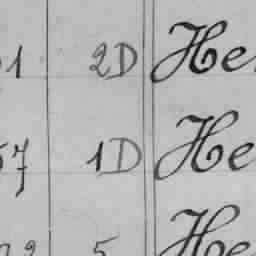 1 2D He
57 1D He
5 He